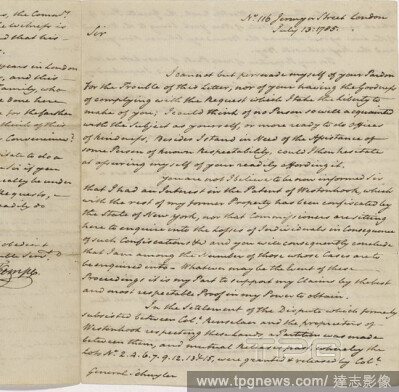 res, the Comm.rs
Witness is
d that his
years in London
and this
Family, who
done here
for the farther
think of this
Convenience?
to do a
if you
be under
Requests,
readily do
obedient
Serv.t
No. 116 Jermyn Street London
July 15. 1785.
Sir
I cannot but persuade myself of your Pardon
for the Trouble of this Letter, nor of your having the Goodness
of complying with the Request which I take the liberty to
make of you, I could think of no Person so acquainted
with the Subject as yourself, or more ready to do Offices
of kindness. Besides I stand in Need of the Assistance of
some Person of known Respectability, could I then hesitate
at assuring myself of your readily affording it.
You are not I believe to be now informed Sir
that I had an Interest in the Patent of Westenhook, which
with the rest of my former Property has been confiscated by
the State of New York, nor that Commissioners are sitting
here to enquire into the losses of Individuals in Consequence
of such Confiscations &c and you will consequently conclude
that I am among the Number of those whose Cases are to
be enquired into. Whatever may be the Event of these
Proceedings it is my Part to support my Claims by the best
and most respectable Proof in my Power to obtain.
In the Settlement of the Dispute which formerly
subsisted between Col. Renselaer and the proprietors of
Westenhook respecting these lands a Partition was made
between them, and mutual Releases, whereby the
Lots No. 2. 4. 6. 7. 9. 12. 13 15, were granted & released by Col.
General Schuyler
www.tpgnews.com / 達志影像